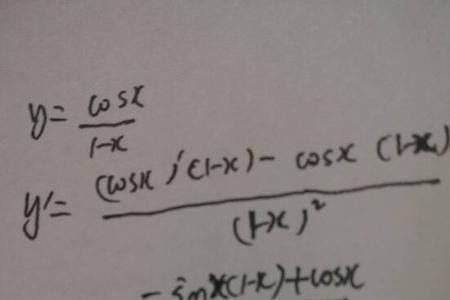 y = cosx / 1-x
y' = (cosx)'(1-x) - cosx (1-x) / (1-x)²
- sinx(1-x) + cosx